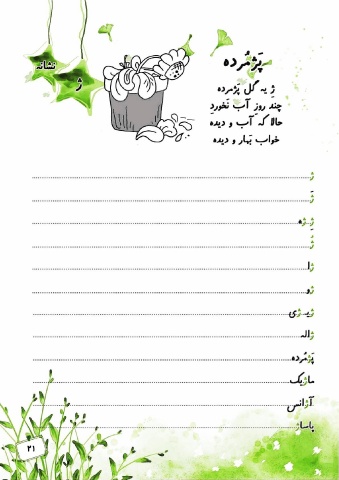 نشانه
ژ
پَژمُرده
ژِ یه گل پژمرده
چند روز آب نخورده
حالا که آب و دیده
خواب بهار و دیده
ژ
ژَ
ژِ ـژه
ژُ
ژا
ژو
ژیـ ـژی
ژاله
پَژمُرده
ماژیک
آژانس
پاساژ
۲۱